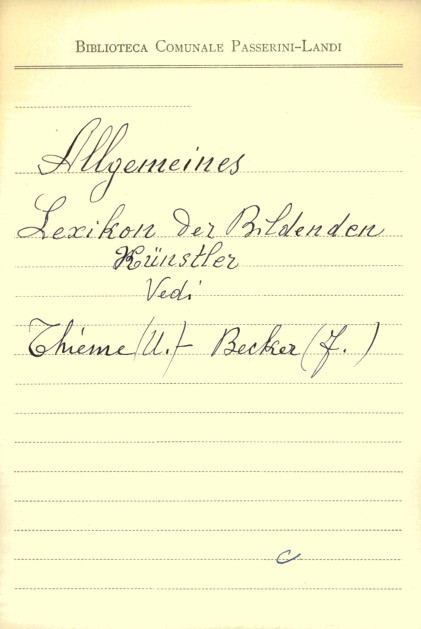 BIBLIOTECA COMUNALE PASSERINI-LANDI
Allgemeines
Lexikon der Bildenden
Künstler
Vedi
Thieme (U.) - Becker (F.)
C